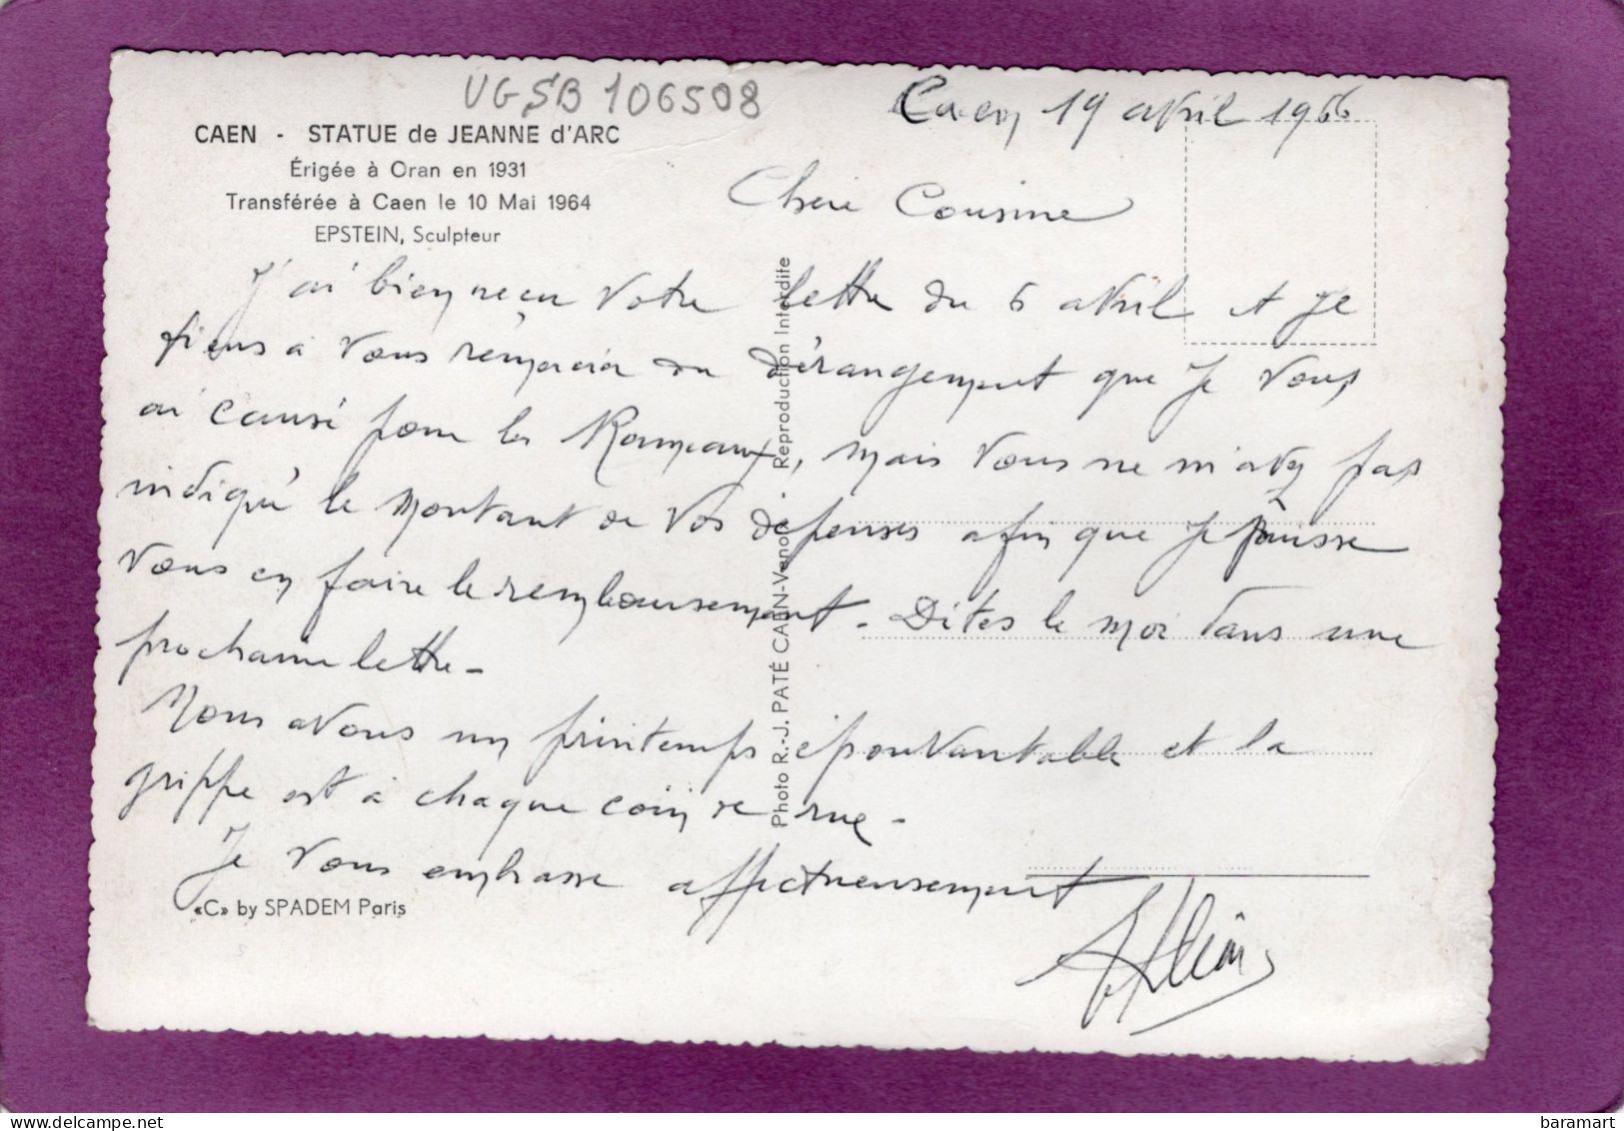 UGSB 106508
CAEN - STATUE de JEANNE d'ARC
Érigée à Oran en 1931
Transférée à Caen le 10 Mai 1964
EPSTEIN, Sculpteur
Caen 19 avril 1966
Chère Cousine
J'ai bien reçu votre lettre du 6 avril et je
tiens à vous remercier du dérangement que je vous
ai causé pour les Rameaux, mais vous ne m'avez pas
indiqué le montant de vos dépenses afin que je puisse
vous en faire le remboursement. Dites le moi dans une
prochaine lettre -
Nous avons un printemps épouvantable et la
grippe est à chaque coin de rue -
Je vous embrasse affectueusement
«C» by SPADEM Paris
Photo R.-J. PATÉ CAEN-Venoix - Reproduction Interdite
baramart